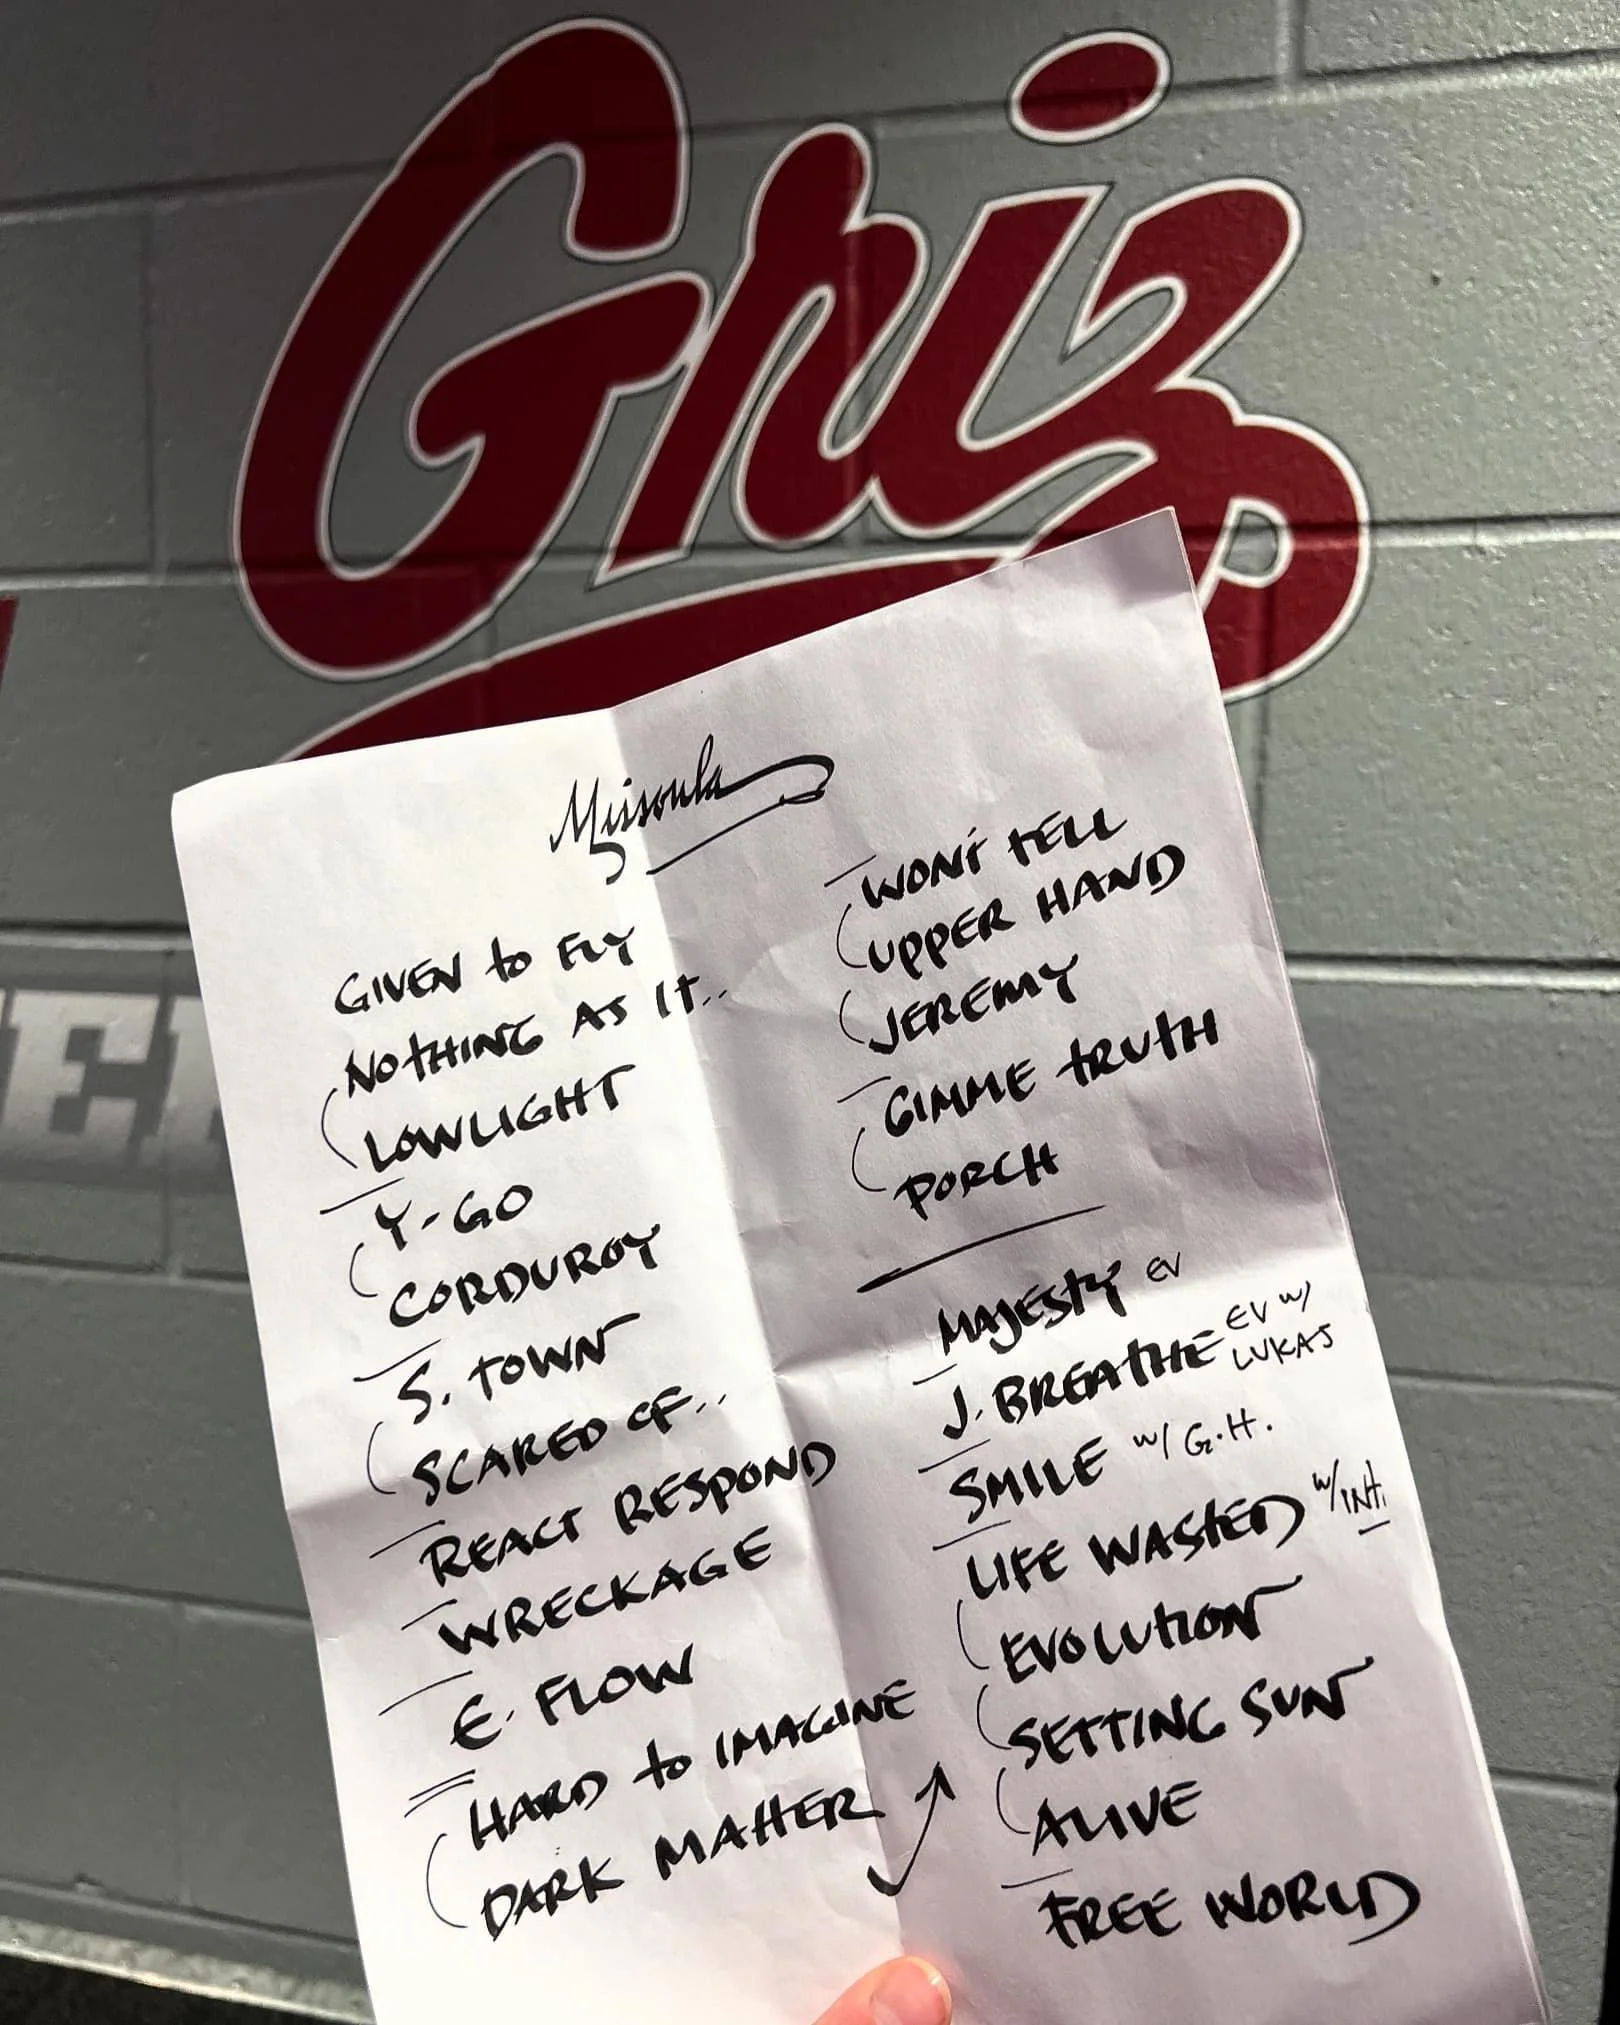 Griz
Missoula
GIVEN to FLY
NOTHING AS It..
LOWLIGHT
Y-GO
CORDUROY
S. TOWN
SCARED OF..
REACT RESPOND
WRECKAGE
E. FLOW
HARD to IMAGINE
DARK MAttER
WON't tELL
UPPER HAND
JEREMY
GIMME tRUtH
PORCH
MAJESTY EV
J. BREATHE EV w/ LUKAS
SMILE w/ G.H.
LIFE WAStED w/INt.
EVOLUtION
SETTING SUN
ALIVE
FREE WORLD